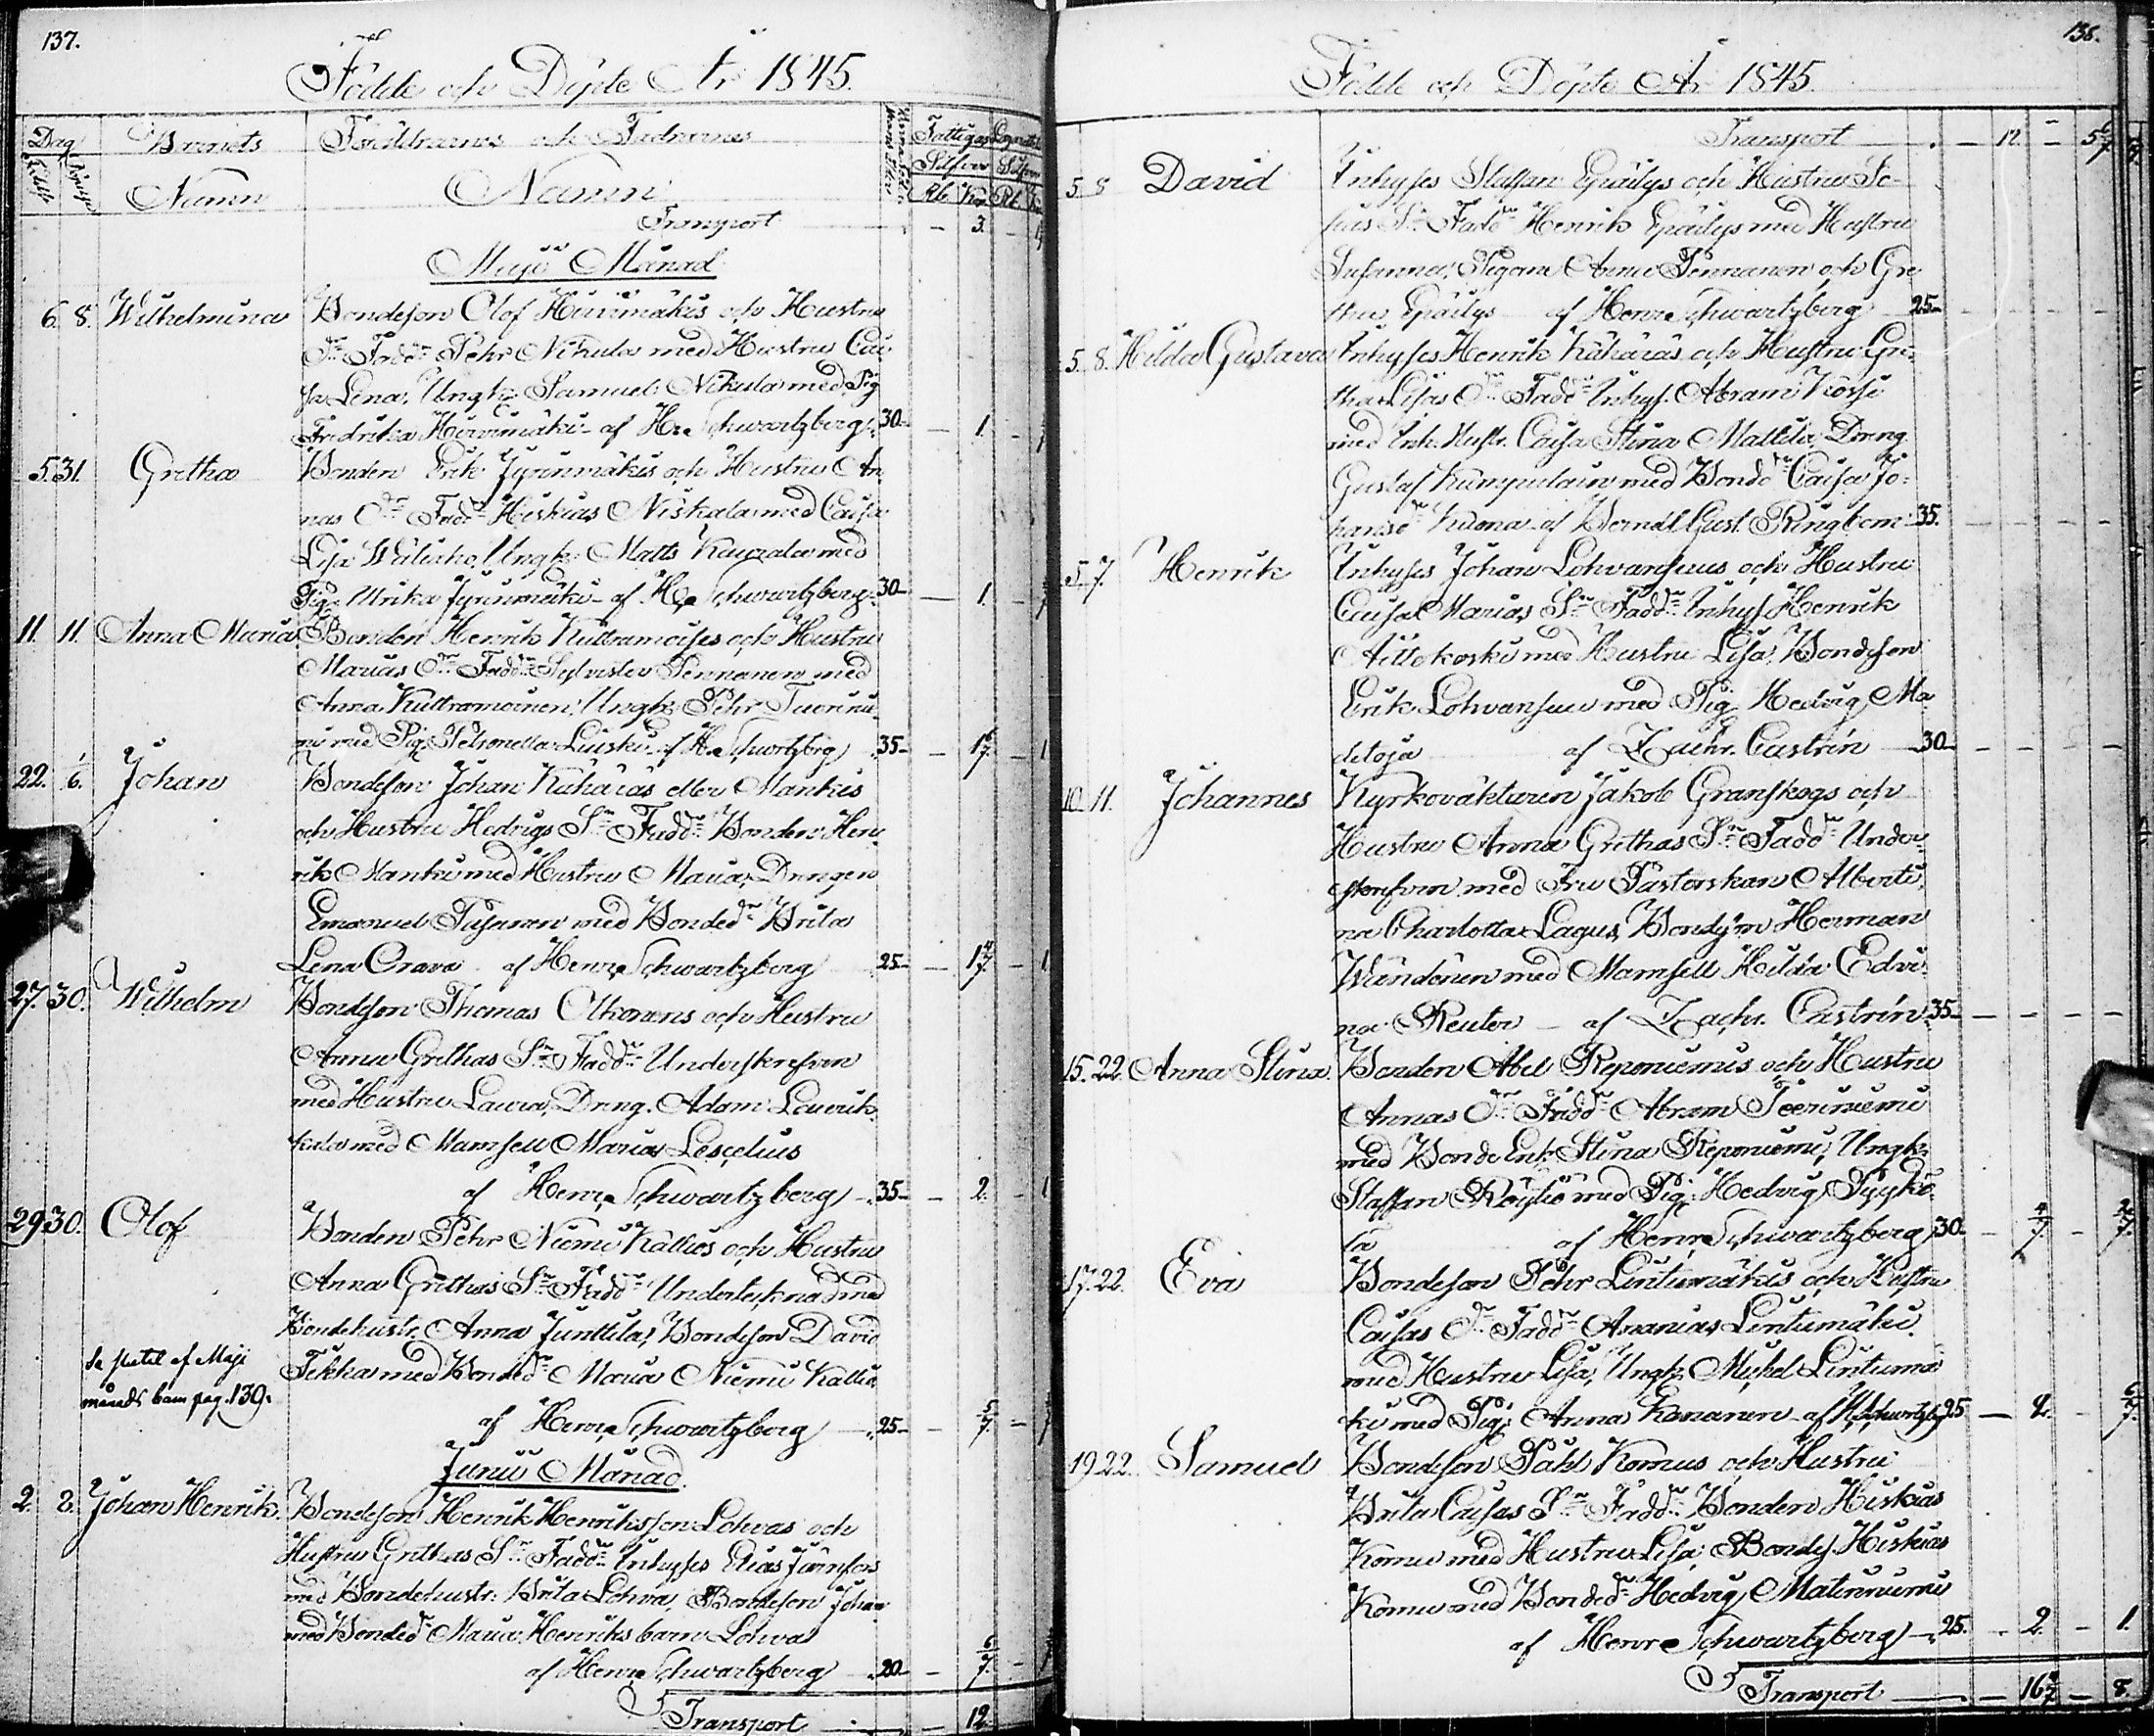 137.
Födde och Döpte År 1845.
Dag
Barnets
Föräldrarnes och Faddrarnes
Fattigas
Silfver
Namn
Namn
Rb. Kop. Rb.
Transport 3.
Maji Månad
6. 8. Wilhelmina Bondeson Olof Hirvimäkis och Hustru
Dr Fadd: Pehr Nikula med Hustru Cai
sa Lena, Ungk: Samuel Nikula med Pig
Fredrika Hirvimäki af H:e Schwartzberg 30 1.
5. 31. Gretha Bonden Erik Jyrinmäkis och Hustru An
nas Dr Fadd: Heskias Niskala med Caisa
Lisa Wälitalo, Ungk: Matts Kauzala med
Pig: Ulrika Jyrinmäki af H:e Schwartzberg 30 1.
11. 11. Anna Maria Bonden Henrik Kuttramoises och Hustru
Marias Dr Fadd: Sylvester Pennanen med
Anna Kuttramoinen, Ungk: Pehr Tuorini
mi med Pig: Petronella Luiski af H:e Schwartzbrg 35 1 6/7.
22. 1/6. Johan Bondeson Johan Kähäräs eller Mankis
och Hustru Hedvigs Sn Fadd: Bonden Hen
rik Manki med Hustru Maria, Drengen
Emanuel Tusunen med Bonded:r Brita
Lena Orava af Henr: Schwartzberg 25 1 4/7.
27. 30. Wilhelm Bondeson Thomas Olkonens och Hustru
Anna Grethas Sn Fadd: Underskrefven
med Hustru Laura, Dreng. Adam Leuvuk
kala med Mamsell Maria Lescelius
af Henr: Schwartzberg 35 2.
29 30. Olof Bonden Pehr Niemi Kallios och Hustru
Anna Grethas Sn Fadd: Undertecknad med
Bondehustr: Anna Junttila, Bondeson David
Tikka med Bonded:r Maria Niemi Kallio
af Henr: Schwartzberg 25 5/7.
Se slutet af Maji
månads barn pag. 139.
Junii Månad.
2. 8. Johan Henrik. Bondeson Henrik Henriksson Lohvas och
Hustru Grethas Sn Fadd: Inhyses Elias Järnfors
med Bondehustr: Brita Lohva, Bondeson Johan
med Bonded:r Maria Henriks barn Lohva
af Henr: Schwartzberg 20 6/7.
Transport 12.
138.
Födde och Döpte År 1845.
Transport 12. 5 6/7
5 8 David Inhyses Staffan Epäilys och Hustru So
fias Sn Fadd: Henrik Epäilys med Hustru
Susanna, Pigorne Anna Pennanen och Gre
tha Epäilys af Henr: Schwartzberg 25
5. 8. Hilda Gustava Inhyses Henrik Kähäräs och Hustru Gre
tha Lisas Dr Fadd: Inhys. Abram Korpi
med Inh. Hustr. Caisa Stina Mattila, Dreng
Gustaf Kumpulain med Bonded:r Caisa Jo
hansd:r Kuona af Berndt Gust. Ringbom 35.
5. 7. Henrik Inhyses Johan Lohvansuus och Hustru
Caisa Marias Sn Fadd: Inhys. Henrik
Aittokoski med Hustru Lisa, Bondeson
Erik Lohvansuu med Pig. Hedvig Ma
detoja af Zachr. Castrén 30
10. 11. Johannes Kyrkoväktaren Jakob Granskogs och
Hustru Anna Grethas Sn Fadd: Under
skrefven med Fru Pastorskan Alberti
na Charlotta Lagus, Bondsn Herman
Wändönen med Mamsell Hilda Edvi
na Reuter af Zachr. Castrén 35
15. 22. Anna Stina. Bonden Abel Reponiemis och Hustru
Annas Dr Fadd: Abram Peeriniemi
med Bonde Enk. Stina Reponiemi, Ungk.
Staffan Röytiö med Pig: Hedvig Pyykö
lä af Henr: Schwartzberg 30 4/7. 2/7.
17. 22. Eva Bondeson Pehr Lintumäkis och Hustru
Caisas Dr Fadd: Ananias Lintumäki
med Hustru Lisa, Ungk. Mickel Lintumä
ki med Pig: Anna Kananen af H. Schwartzbrg 25 2. 6/7.
19 22. Samuel Bondeson Påhl Komus och Hustru
Brita Caisas Sn Fadd: Bonden Hiskias
Komu med Hustru Lisa, Bondes. Hiskias
Komu med Bonded:r Hedvig Matinniemi
af Henr: Schwartzberg 25. 2. 1.
Transport 16 4/7 8